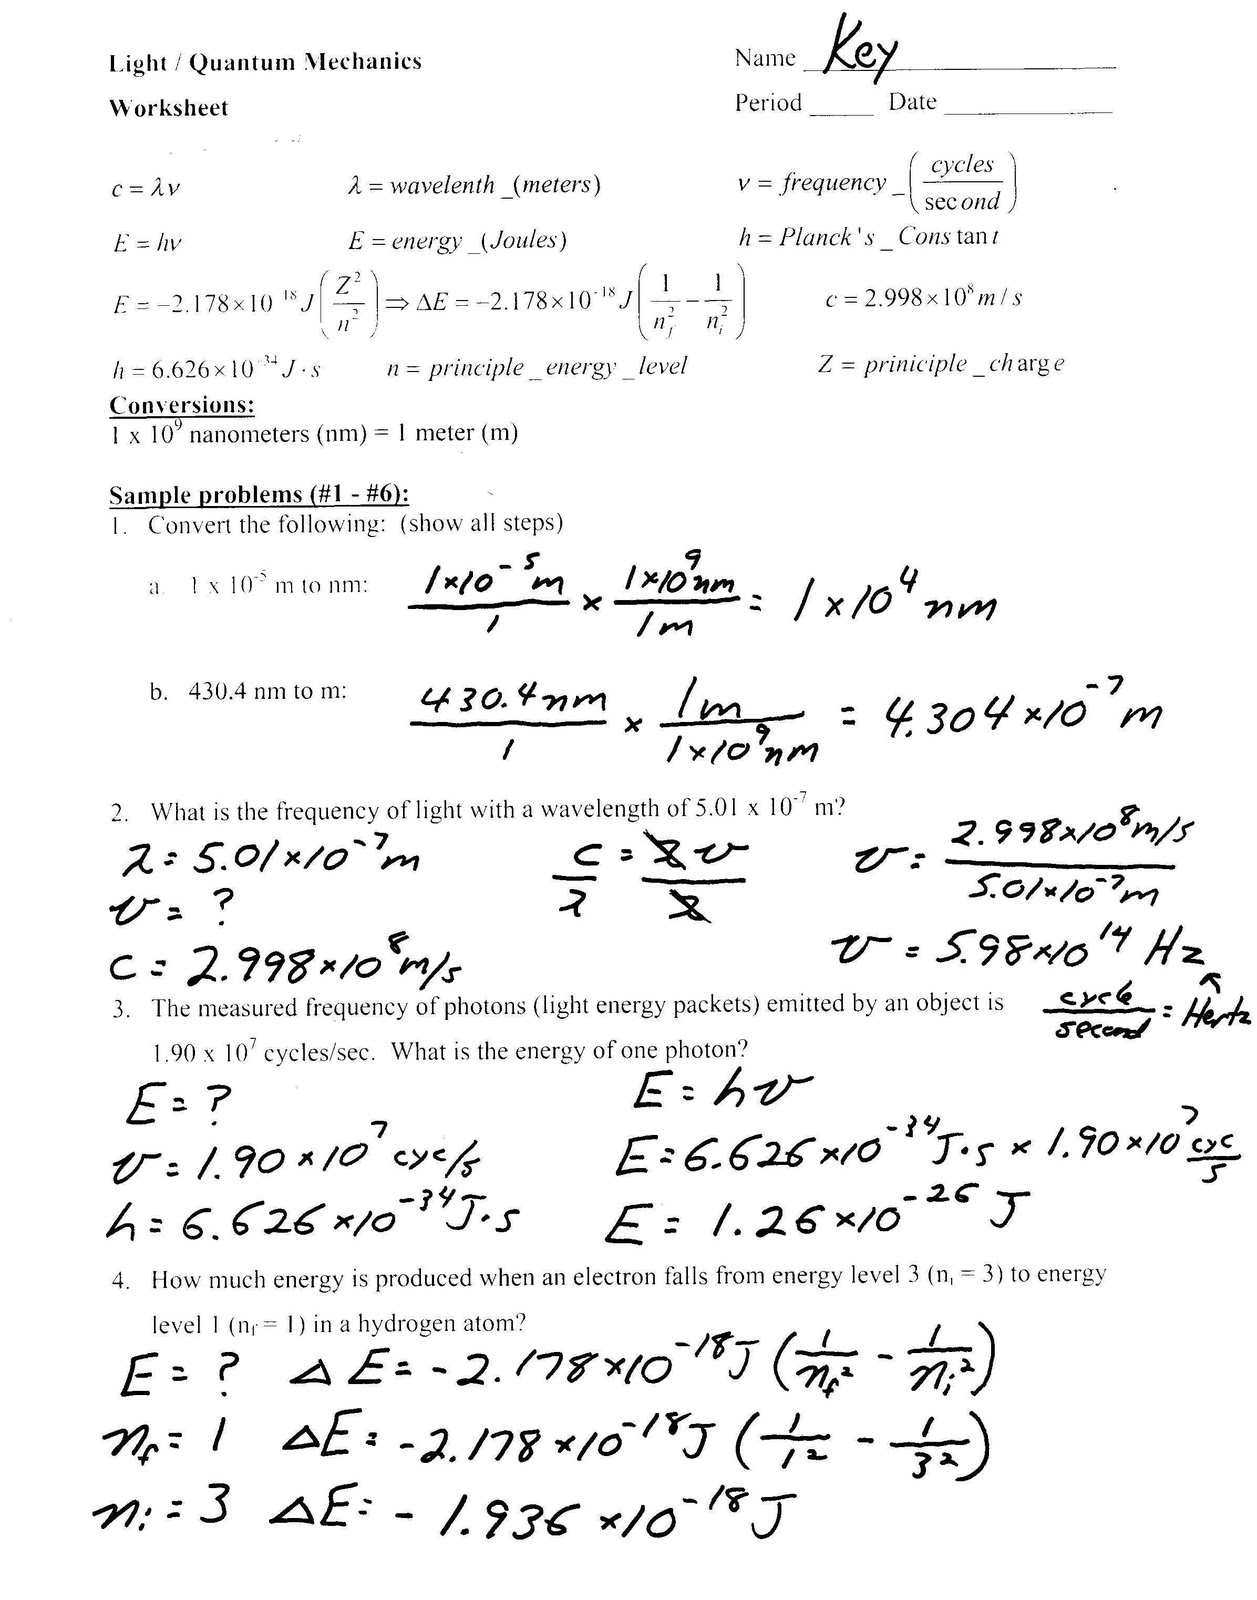 Light / Quantum Mechanics
Name Key
Worksheet
Period ____ Date ____
c = λν
λ = wavelenth _(meters)
ν = frequency _(cycles/second)
E = hν
E = energy _(Joules)
h = Planck's _ Constant
E = −2.178×10⁻¹⁸ J(Z²/n²) ⇒ ΔE = −2.178×10⁻¹⁸ J(1/n_f² − 1/n_i²)
c = 2.998×10⁸ m/s
h = 6.626×10⁻³⁴ J·s
n = principle _ energy _ level
Z = priniciple _ charge
Conversions:
1 x 10⁹ nanometers (nm) = 1 meter (m)
Sample problems (#1 - #6):
1. Convert the following: (show all steps)
a. 1 x 10⁻⁵ m to nm: 1×10⁻⁵ m/1 × 1×10⁹ nm/1m = 1×10⁴ nm
b. 430.4 nm to m: 430.4 nm/1 × 1m/1×10⁹ nm = 4.304×10⁻⁷ m
2. What is the frequency of light with a wavelength of 5.01 x 10⁻⁷ m?
λ = 5.01×10⁻⁷ m
c/λ = λν/λ
ν = 2.998×10⁸ m/s / 5.01×10⁻⁷ m
ν = ?
c = 2.998×10⁸ m/s
ν = 5.98×10¹⁴ Hz
cycle/second = Hertz
3. The measured frequency of photons (light energy packets) emitted by an object is
1.90 x 10⁷ cycles/sec. What is the energy of one photon?
E = ?
E = hν
ν = 1.90×10⁷ cyc/s
E = 6.626×10⁻³⁴ J·s × 1.90×10⁷ cyc/s
h = 6.626×10⁻³⁴ J·s
E = 1.26×10⁻²⁶ J
4. How much energy is produced when an electron falls from energy level 3 (n_i = 3) to energy
level 1 (n_f = 1) in a hydrogen atom?
E = ? ΔE = -2.178×10⁻¹⁸ J (1/n_f² - 1/n_i²)
n_f = 1 ΔE = -2.178×10⁻¹⁸ J (1/1² - 1/3²)
n_i = 3 ΔE = -1.936×10⁻¹⁸ J